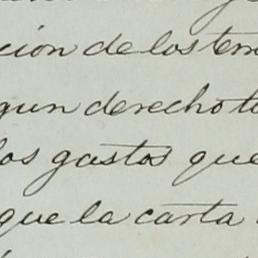 cion de los tem
gun derecho to
los gastos que
que la carta